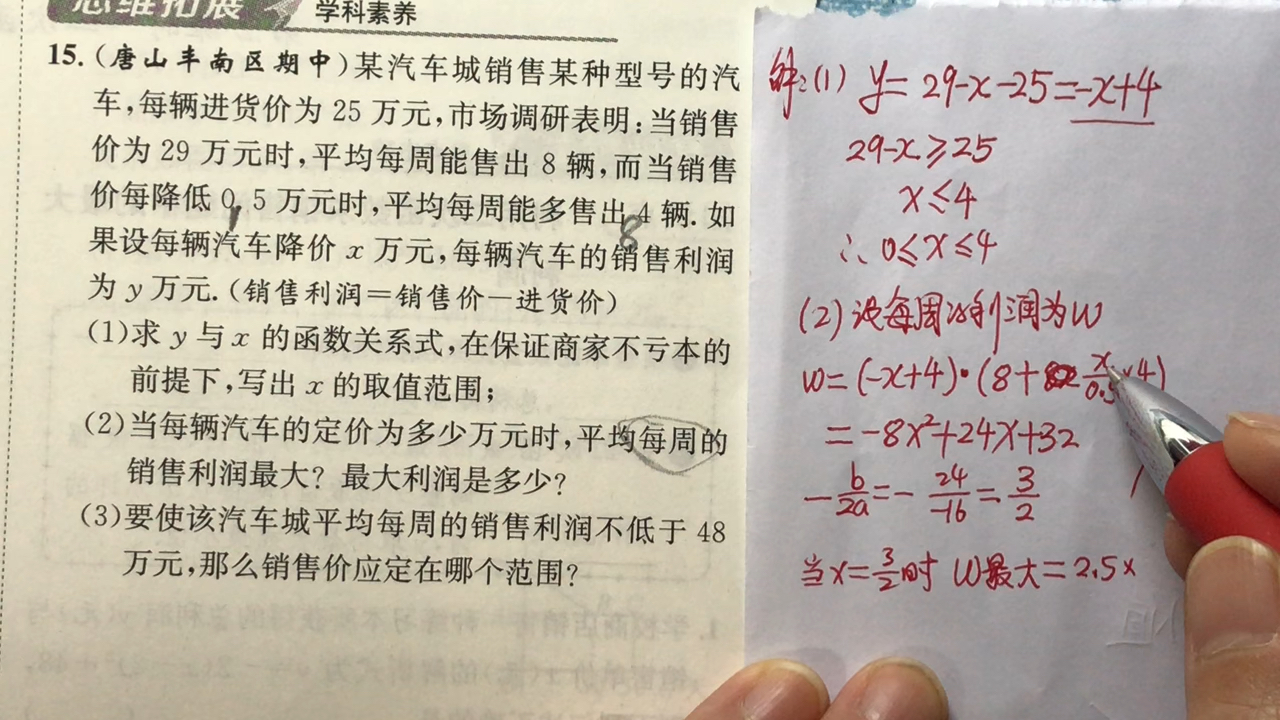 思维拓展 学科素养
15.(唐山丰南区期中)某汽车城销售某种型号的汽
车,每辆进货价为 25 万元,市场调研表明:当销售
价为 29 万元时,平均每周能售出 8 辆,而当销售
价每降低 0.5 万元时,平均每周能多售出 4 辆.如
1
8
果设每辆汽车降价 x 万元,每辆汽车的销售利润
为 y 万元.(销售利润=销售价-进货价)
(1)求 y 与 x 的函数关系式,在保证商家不亏本的
前提下,写出 x 的取值范围;
(2)当每辆汽车的定价为多少万元时,平均每周的
销售利润最大?最大利润是多少?
(3)要使该汽车城平均每周的销售利润不低于 48
万元,那么销售价应定在哪个范围?
解:(1) y=29-x-25=-x+4
29-x≥25
x≤4
∴0≤x≤4
(2)设每周的利润为W
W=(-x+4)·(8+x/0.5×4)
=-8x²+24x+32
-b/2a=-24/-16=3/2
当x=3/2时 W最大=2.5×